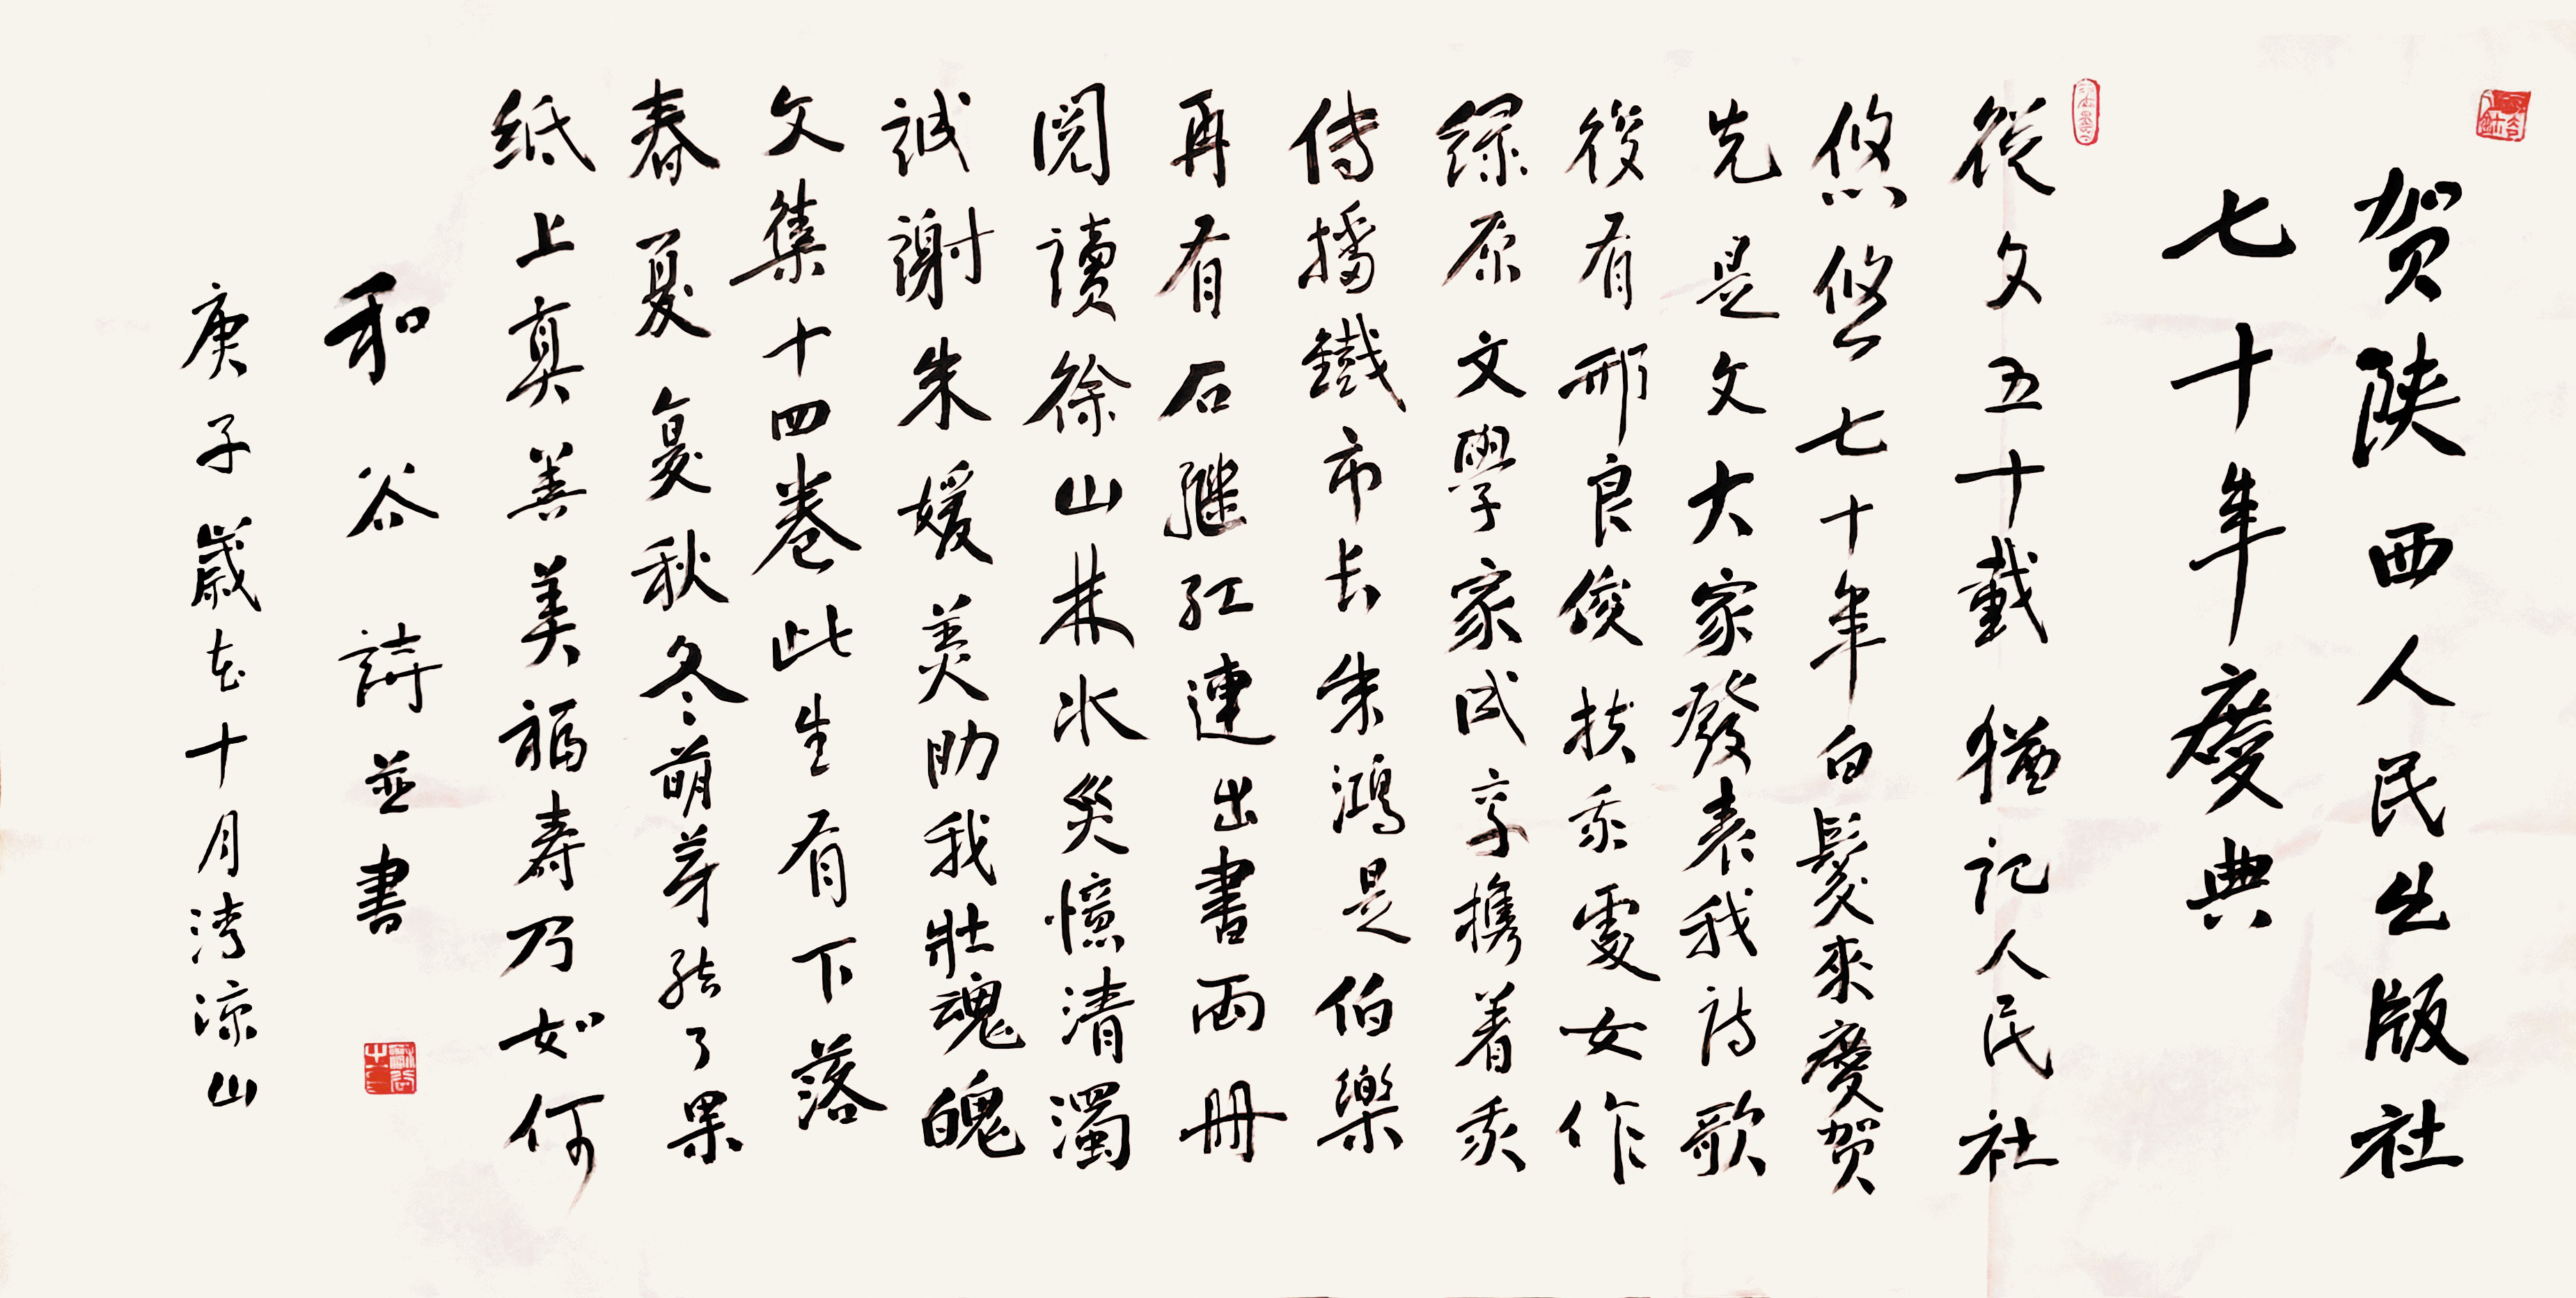 贺陕西人民出版社
七十年慶典
從文五十載猶記人民社
悠悠七十年白髮來慶贺
先是文大家發表我詩歌
後有邢良俊扶我處女作
綠原文學家成享携着我
傳播鐵市长朱鴻是伯樂
再有石继红連出書兩册
閱讀徐山林水災憶清濁
誠謝朱媛美助我壯魂魄
文集十四卷此生有下落
春夏复秋冬萌芽结了果
纸上真善美福壽乃如何
和谷詩並書
庚子歲在十月湾凉山